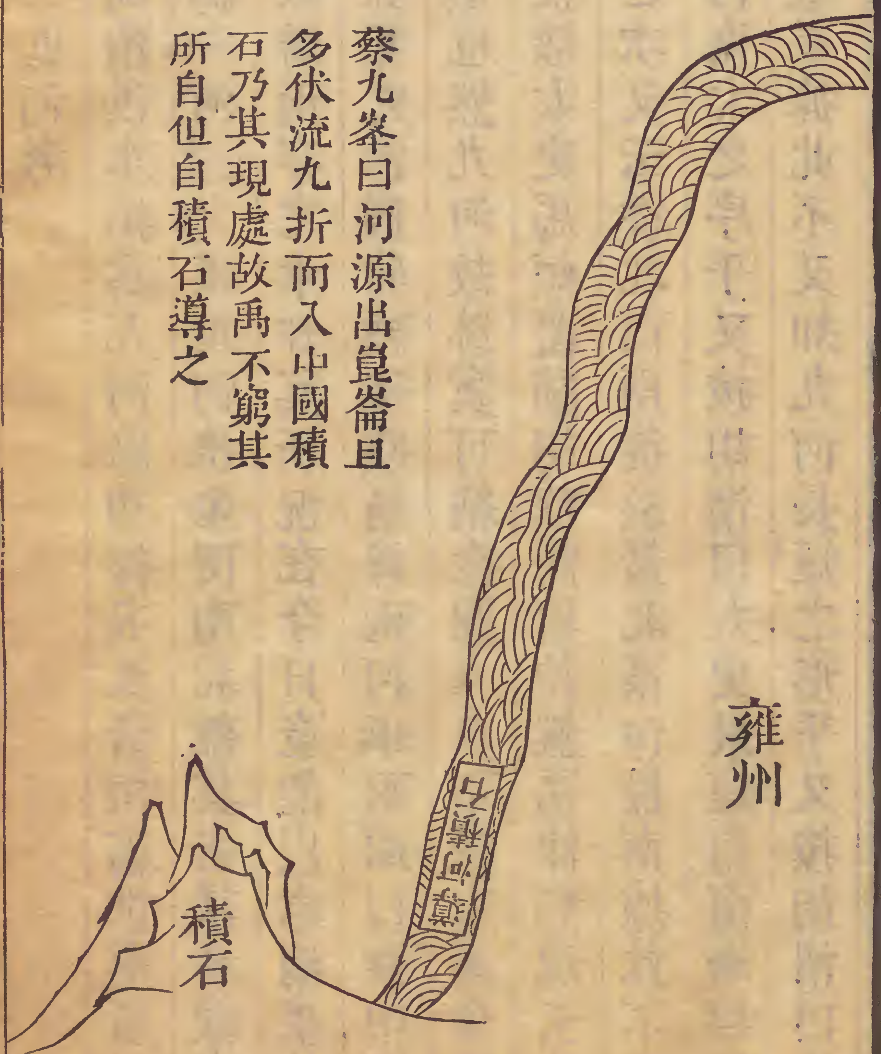 蔡九峯曰河源出崑崙且
多伏流九折而入中國積
石乃其現處故禹不窮其
所自但自積石導之
雍州
導河積石
積石